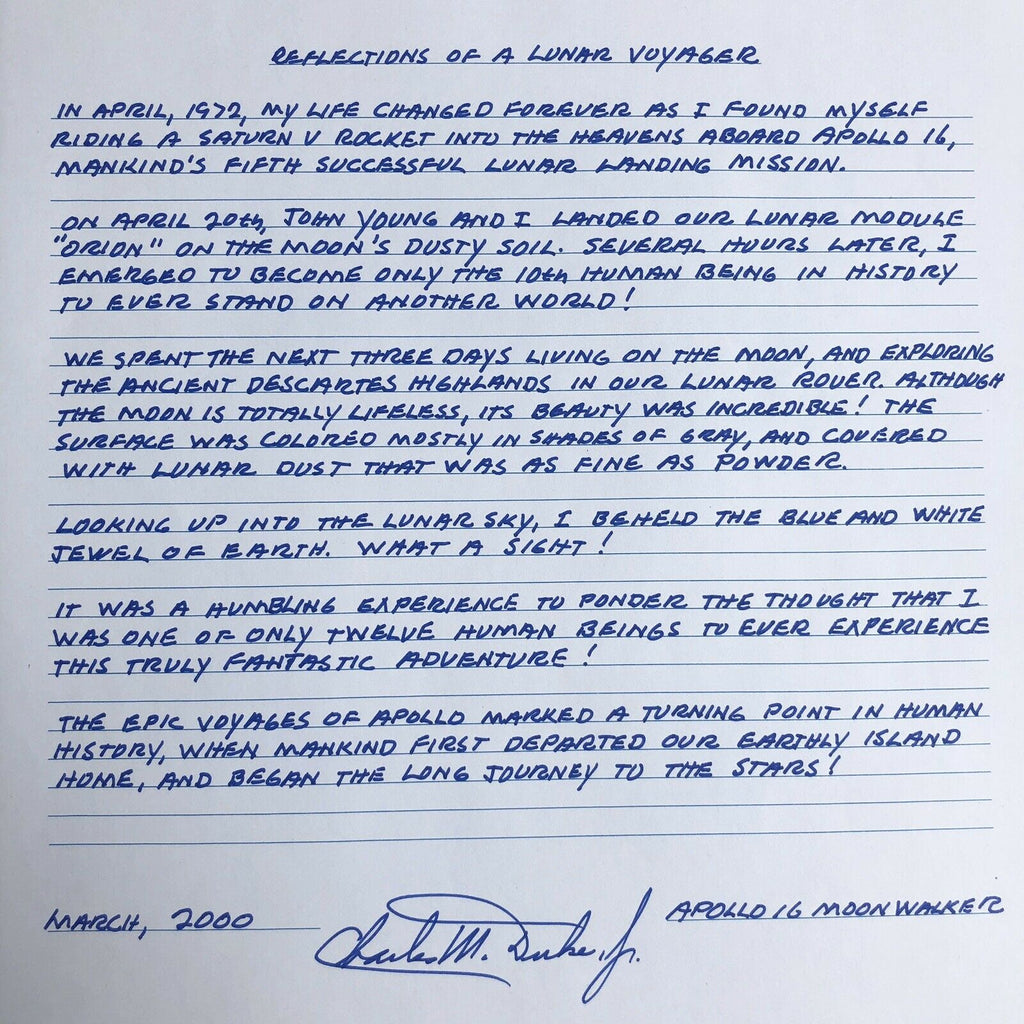 REFLECTIONS OF A LUNAR VOYAGER
IN APRIL, 1972, MY LIFE CHANGED FOREVER AS I FOUND MYSELF
RIDING A SATURN V ROCKET INTO THE HEAVENS ABOARD APOLLO 16,
MANKIND'S FIFTH SUCCESSFUL LUNAR LANDING MISSION.
ON APRIL 20th, JOHN YOUNG AND I LANDED OUR LUNAR MODULE
"ORION" ON THE MOON'S DUSTY SOIL. SEVERAL HOURS LATER, I
EMERGED TO BECOME ONLY THE 10th HUMAN BEING IN HISTORY
TO EVER STAND ON ANOTHER WORLD!
WE SPENT THE NEXT THREE DAYS LIVING ON THE MOON, AND EXPLORING
THE ANCIENT DESCARTES HIGHLANDS IN OUR LUNAR ROVER. ALTHOUGH
THE MOON IS TOTALLY LIFELESS, ITS BEAUTY WAS INCREDIBLE! THE
SURFACE WAS COLORED MOSTLY IN SHADES OF GRAY, AND COVERED
WITH LUNAR DUST THAT WAS AS FINE AS POWDER.
LOOKING UP INTO THE LUNAR SKY, I BEHELD THE BLUE AND WHITE
JEWEL OF EARTH. WHAT A SIGHT!
IT WAS A HUMBLING EXPERIENCE TO PONDER THE THOUGHT THAT I
WAS ONE OF ONLY TWELVE HUMAN BEINGS TO EVER EXPERIENCE
THIS TRULY FANTASTIC ADVENTURE!
THE EPIC VOYAGES OF APOLLO MARKED A TURNING POINT IN HUMAN
HISTORY, WHEN MANKIND FIRST DEPARTED OUR EARTHLY ISLAND
HOME, AND BEGAN THE LONG JOURNEY TO THE STARS!
MARCH, 2000
Charles M. Duke, Jr.
APOLLO 16 MOONWALKER